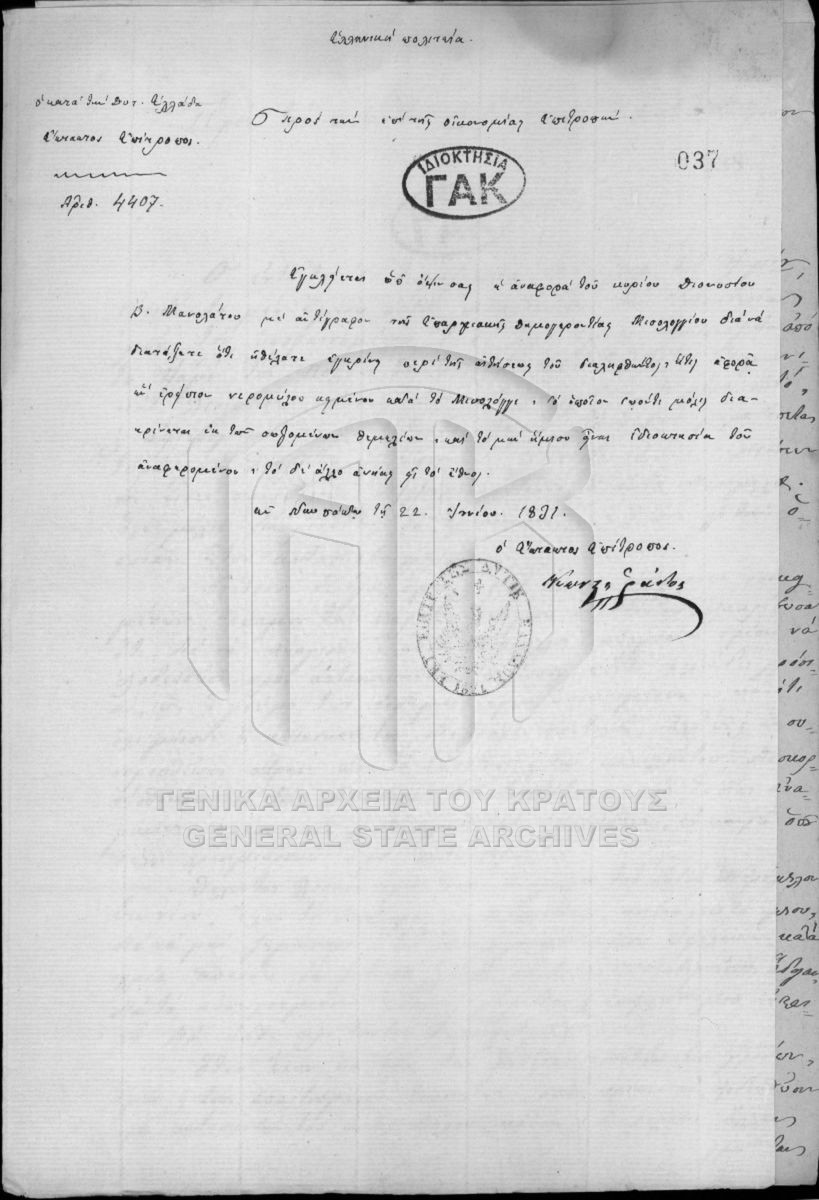 Ἑλληνικὴ πολιτεία.
ὁ κατὰ τὴν Δυτ. Ἑλλάδα
Ἔκτακτος Ἐπίτροπος.
Ἀριθ. 4407.
Πρὸς τὴν ἐπὶ τῆς οἰκονομίας Ἐπιτροπήν.
ΙΔΙΟΚΤΗΣΙΑ
ΓΑΚ
037
Ἐγκλείεται ὑπ' ὄψιν σας ἡ ἀναφορὰ τοῦ κυρίου Διονυσίου
Β. Μανολάτου μὲ ἀντίγραφον τῆς Ἐπαρχιακῆς Δημογεροντίας Μεσολογγίου διὰ νὰ
διατάξετε ὅ,τι ἠθέλατε ἐγκρίνῃ περὶ τῆς αἰτήσεως τοῦ διαληφθέντος, ἥτις ἀφορᾷ
εἰς ἐρήπιον νερομύλου κειμένου κατὰ τὸ Μεσολόγγι, τὸ ὁποῖον μόλις δια-
κρίνεται ἐκ τῶν σωζομένων θεμελίων, καὶ τὸ μὲν ἥμισυ εἶναι ἰδιοκτησία τοῦ
ἀναφερομένου, τὸ δὲ ἄλλο ἀνήκει εἰς τὸ ἔθνος.
ἐν Ναυπάκτῳ τῇ 22. Ἰουνίου. 1831.
ὁ Ἔκτακτος Ἐπίτροπος.
ΓΕΝΙΚΑ ΑΡΧΕΙΑ ΤΟΥ ΚΡΑΤΟΥΣ
GENERAL STATE ARCHIVES